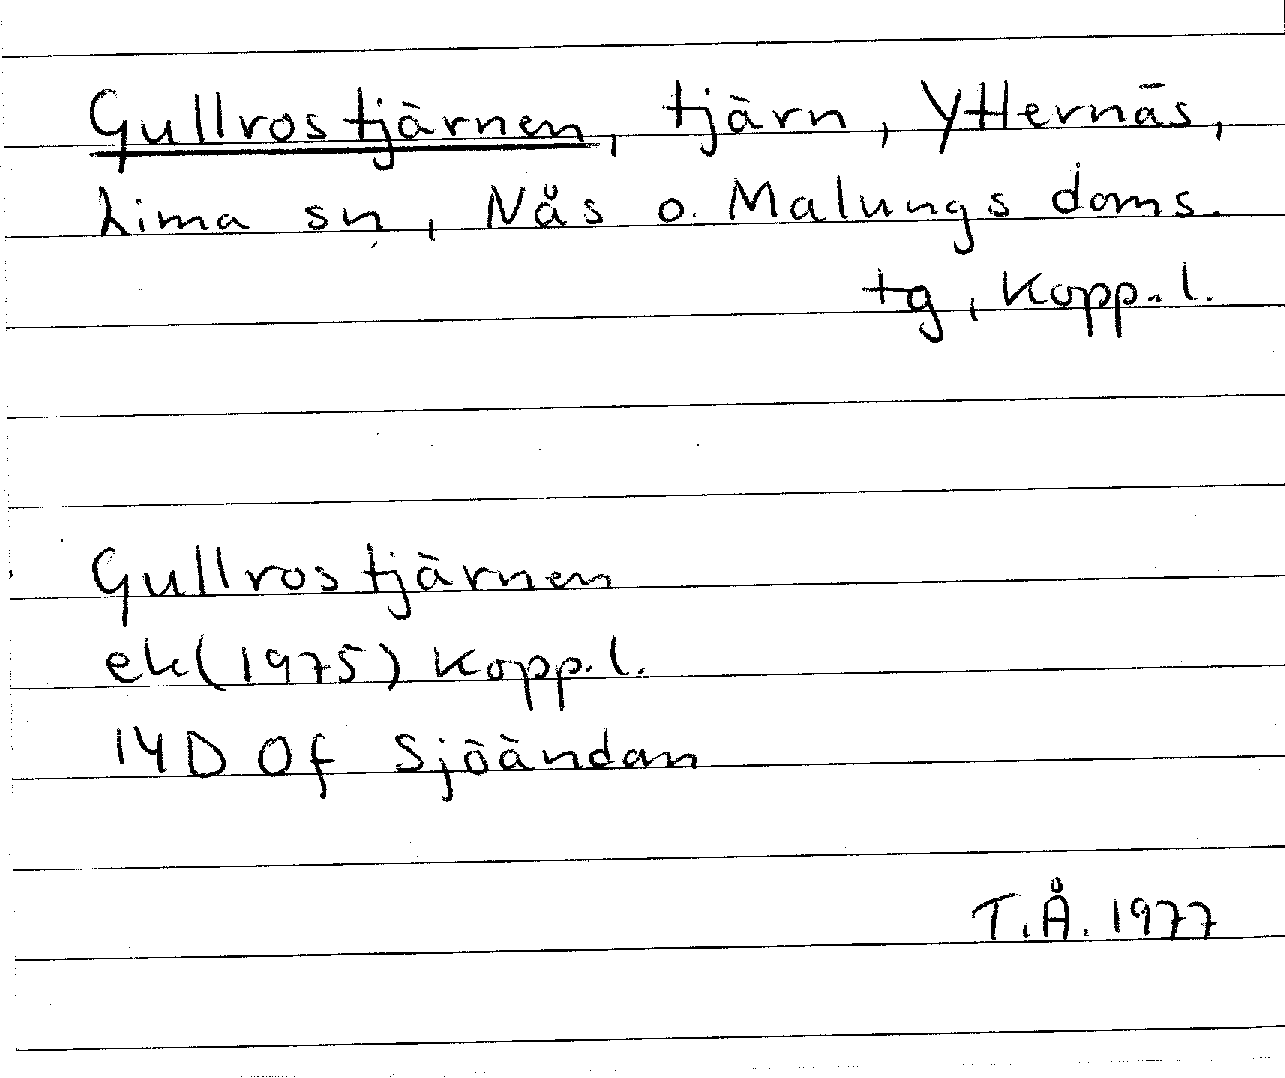 Gullrostjärnen, tjärn, Ytternäs,
Lima sn, Nås o. Malungs doms.
tg, Kopp. l.
Gullrostjärnen
ek (1975) Kopp. l.
14D 0f Sjöändan
T.Å. 1977